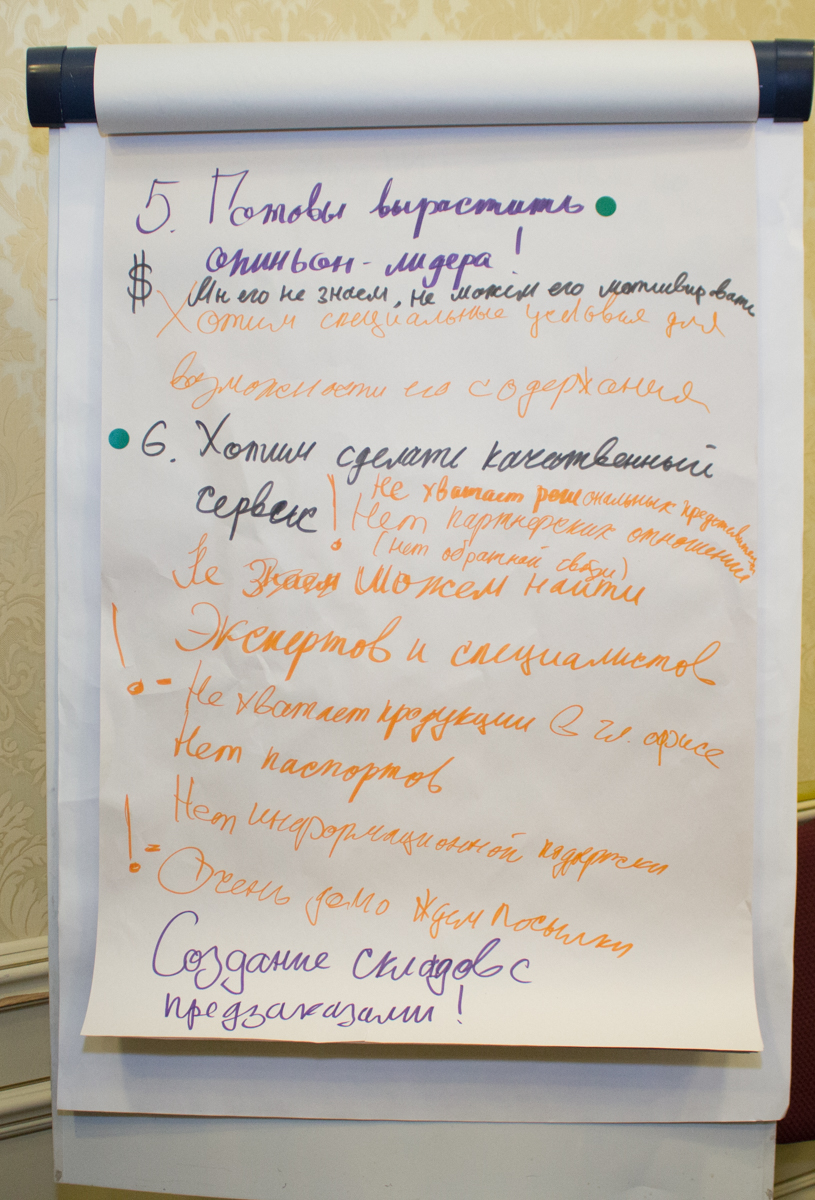 5. Готовы вырастить
опиньон-лидера!
$ Мы его не знаем, не можем его мотивировать
Хотим специальные условия для
возможности его содержания
6. Хотим сделать качественный
сервис
! Не хватает региональных представителей
Нет партнерских отношений
(нет обратной связи)
Не знаем можем найти
Экспертов и специалистов
! - Не хватает продукции в гл. офисе
Нет паспортов
Нет информационной поддержки
! = Очень долго ждем посылки
Создание складов с
предзаказами!